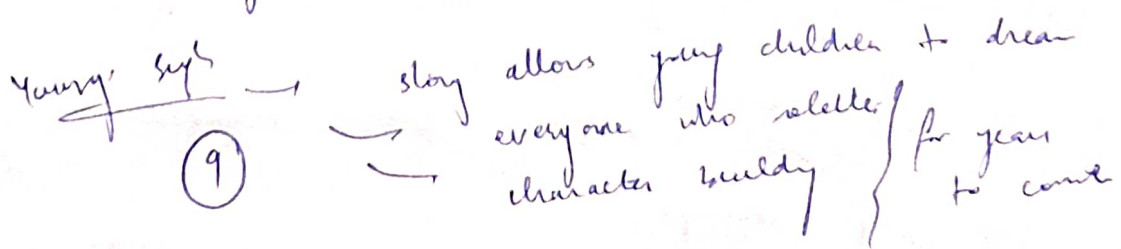 Young. → story allows young children to dream
→ everyone who
⑨ → character building } for years
to come